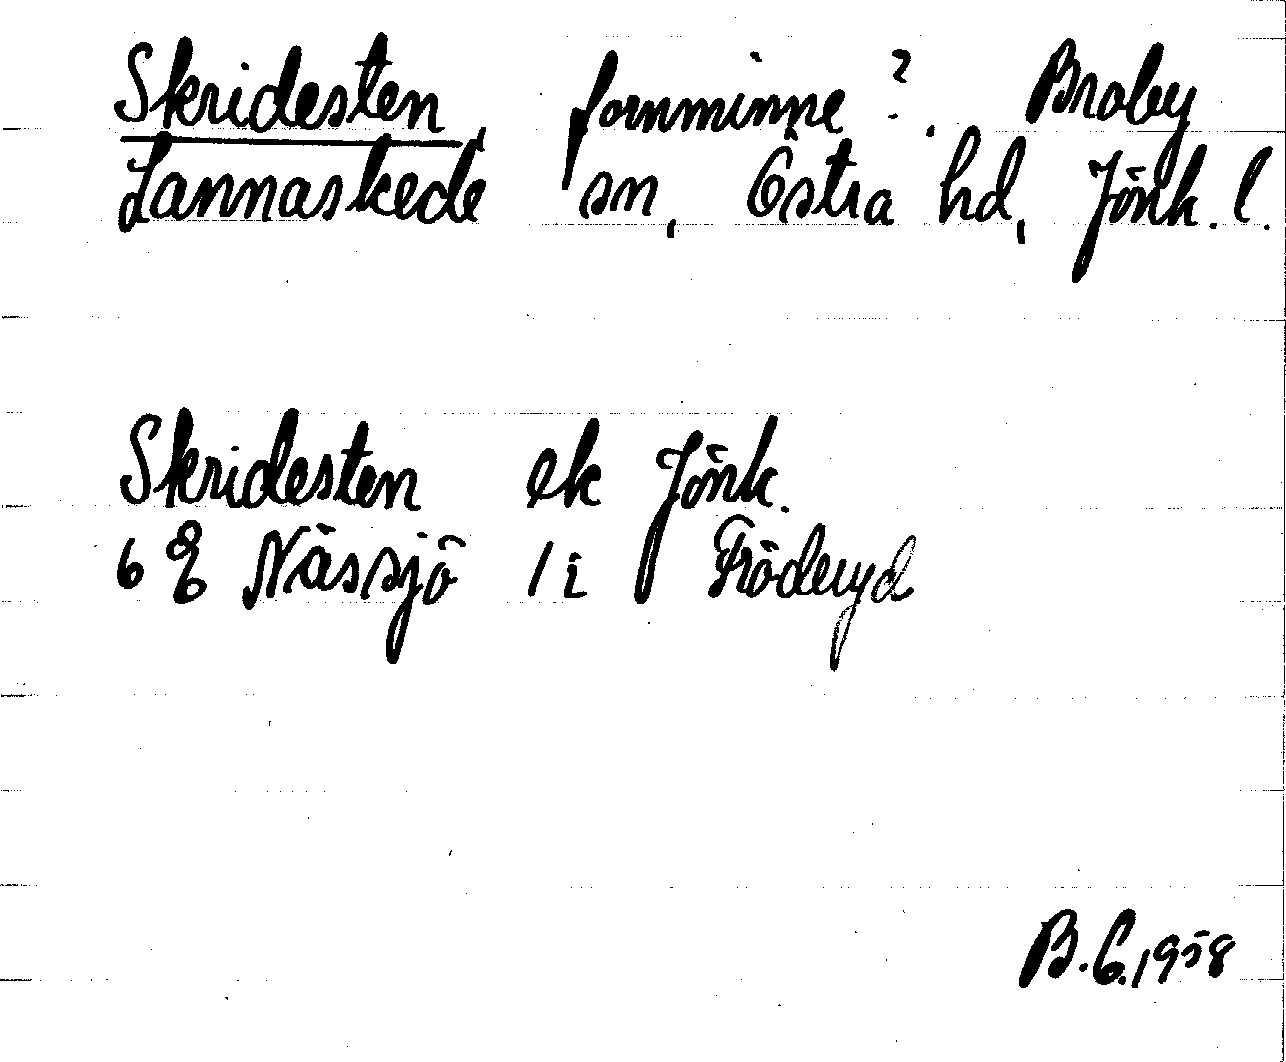 Skridesten, fornminne?. Braby
Lannaskede sn, Östra hd, Jönk. l.
Skridesten ek Jönk.
6 E Nässjö / i Fröderyd
B.G.1958